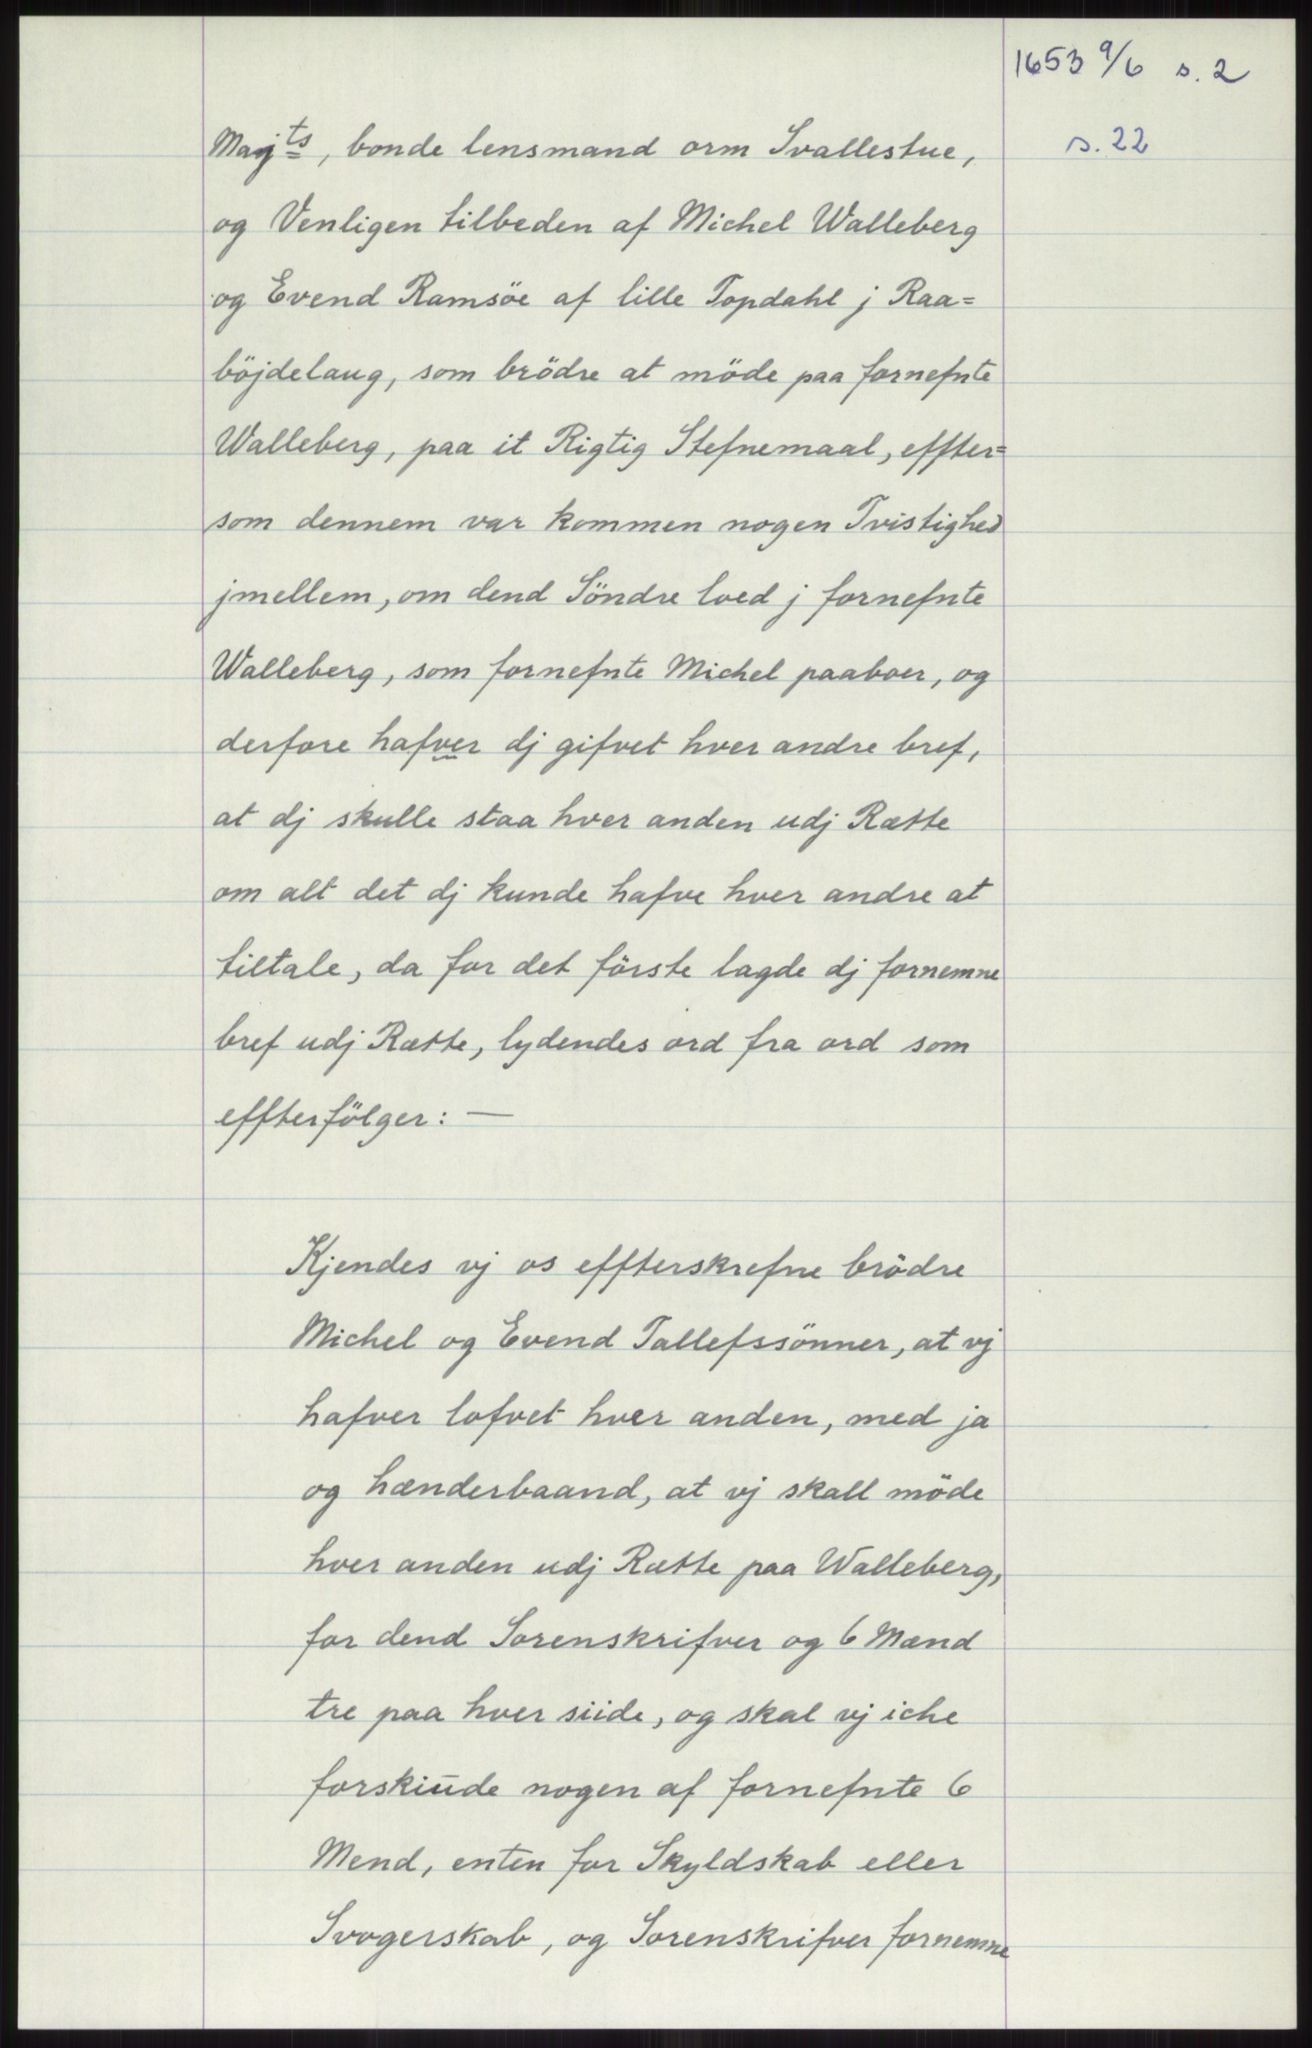 1653 9/6 s. 2
s. 22
Majts, bonde lensmand orm Svallestue,
og Venligen tilbeden af Michel Walleberg
og Evend Ramsöe af lille Topdahl j Raa=
böjdelaug, som brödre at möde paa fornefnte
Walleberg, paa it Rigtig Stefnemaal, effter=
som dennem var kommen nogen Tvistighed
jmellem, om dend Söndre loed j fornefnte
Walleberg, som fornefnte Michel paaboer, og
derfore hafver dj gifvet hver andre bref,
at dj skulle staa hver anden udj Rætte
om alt det dj kunde hafve hver andre at
tiltale, da for det förste lagde dj fornemne
bref udj Rætte, lydendes ord fra ord som
effterfölger: —
Kjendes vj os effterskrefne brödre
Michel og Evend Tallefssönner, at vj
hafver lofvet hver anden, med ja
og hænderbaand, at vj skall möde
hver anden udj Rætte paa Walleberg,
for dend Sorenskrifver og 6 Mænd
tre paa hver siide, og skal vj iche
forskiude nogen af fornefnte 6
Mend, enten for Skyldskab eller
Svogerskab, og Sorenskrifver fornemne